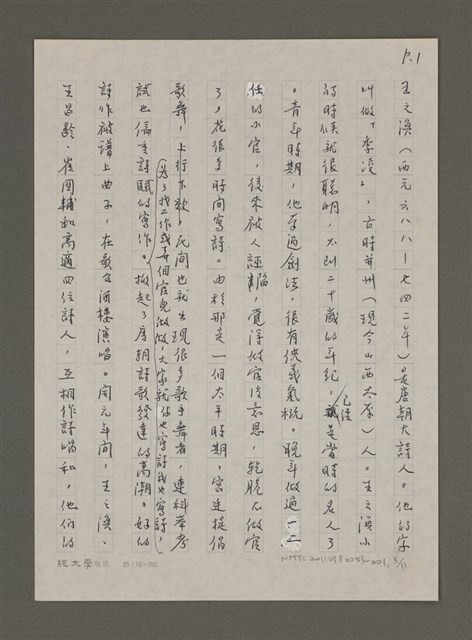 P.1
王之渙（西元六八八—七四二年）是唐朝大詩人。他的字
叫做「季凌」，古時并州（現今山西太原）人。王之渙小
的時候就很聰明，不到二十歲的年紀，已經是當時的名人了
。青年時期，他學過劍法，很有俠義氣概。晚年做過一二
任的小官，後來被人誣陷，覺得做官沒意思，乾脆不做官
了，花很多時間寫詩。由於那是一個太平時期，宮廷提倡
歌舞，上行下效，民間也就出現很多歌手舞者，連科舉考
試也偏重詩賦的寫作。為了找工作或弄個官兒做做，大家就你也寫詩我也寫詩，掀起了唐朝詩歌發達的高潮。好的
詩作被譜上曲子，在歌台酒樓演唱。開元年間，王之渙、
王昌齡、崔國輔和高適四位詩人，互相作詩唱和，他們的
25×10=250
NMTL 2011 03 8 0053-001, 3/1